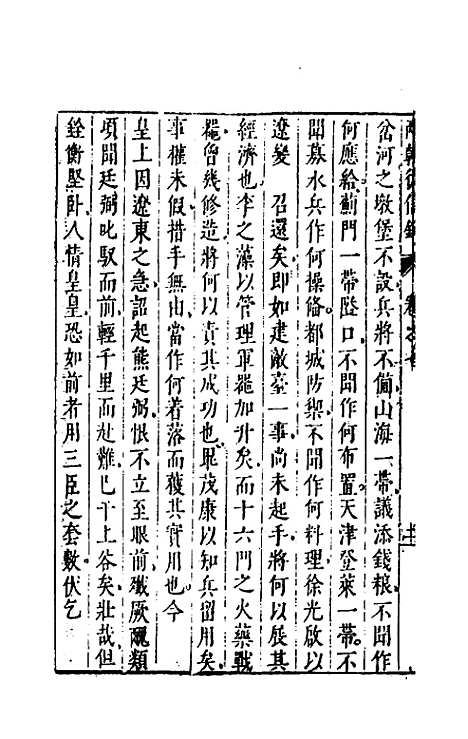 兩朝從信錄
岔河之墩堡不設兵將不備山海一帶議添錢糧不聞作
何應給薊門一帶隘口不聞作何布置天津登萊一帶不
聞募水兵作何操備都城防禦不聞作何料理徐光啟以
遼變　召還矣即如建敵臺一事尚未起手將何以展其
經濟也李之藻以管理軍器加升矣而十六門之火藥戰
器曾幾修造將何以責其成功也晁茂康以知兵留用矣
事權未假措手無由當作何着落而獲其實用也今
皇上因遼東之急詔起熊廷弼恨不立至眼前殲厥醜類
頃聞廷弼叱馭而前輕千里而赴難已干上谷矣壯哉但
銓衡堅卧人情皇皇恐如前者用三臣之套數伏乞